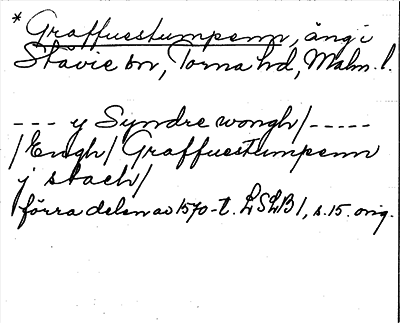 * Graffuestumpenn, äng i
Stävie sn, Torna hd, Malm. l.
--- y Syndre wongh/-----
/Engh/ Graffuestumpenn
j stach/
förra delen av 1570-t. LSLB 1, s. 15. orig.